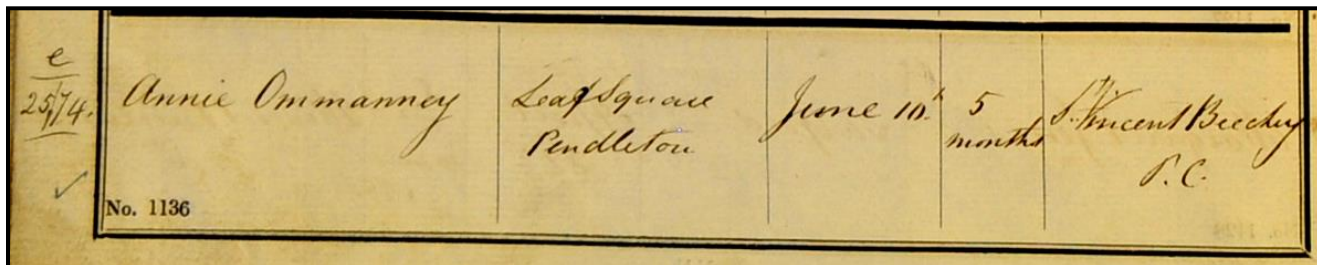 e
25/74.
Annie Ommanney
Leaf Square
Pendleton
June 10th
5
months
St. Vincent Beechey
P. C.
No. 1136